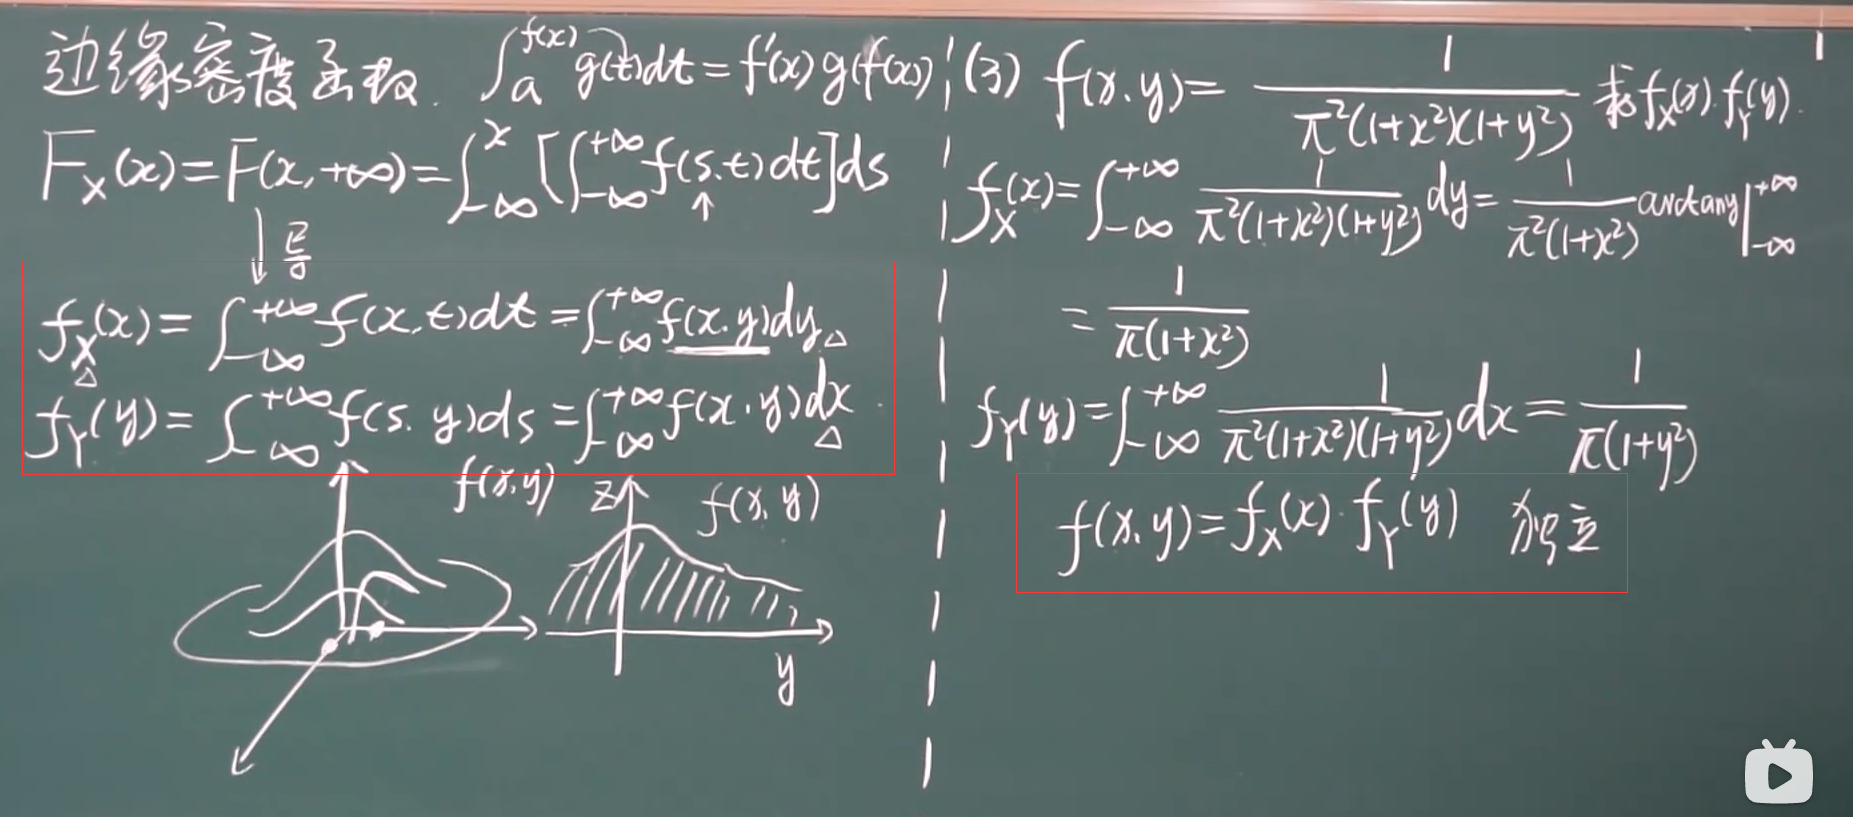 边缘密度函数. ∫_a^{f(x)} g(t)dt = f'(x)g(f(x))
F_X(x) = F(x,+∞) = ∫_{-∞}^{x} [∫_{-∞}^{+∞} f(s.t)dt]ds
↑
↓导
f_X(x) = ∫_{-∞}^{+∞} f(x,t)dt = ∫_{-∞}^{+∞} f(x.y)dy △
△
f_Y(y) = ∫_{-∞}^{+∞} f(s.y)ds = ∫_{-∞}^{+∞} f(x.y)dx.
△
f(x,y) z f(x,y)
y
(3) f(x.y) = 1/(π²(1+x²)(1+y²)) 求f_X(x).f_Y(y).
f_X(x) = ∫_{-∞}^{+∞} 1/(π²(1+x²)(1+y²)) dy = 1/(π²(1+x²)) arctany|_{-∞}^{+∞}
= 1/(π(1+x²))
f_Y(y) = ∫_{-∞}^{+∞} 1/(π²(1+x²)(1+y²)) dx = 1/(π(1+y²))
f(x.y) = f_X(x)·f_Y(y) 独立